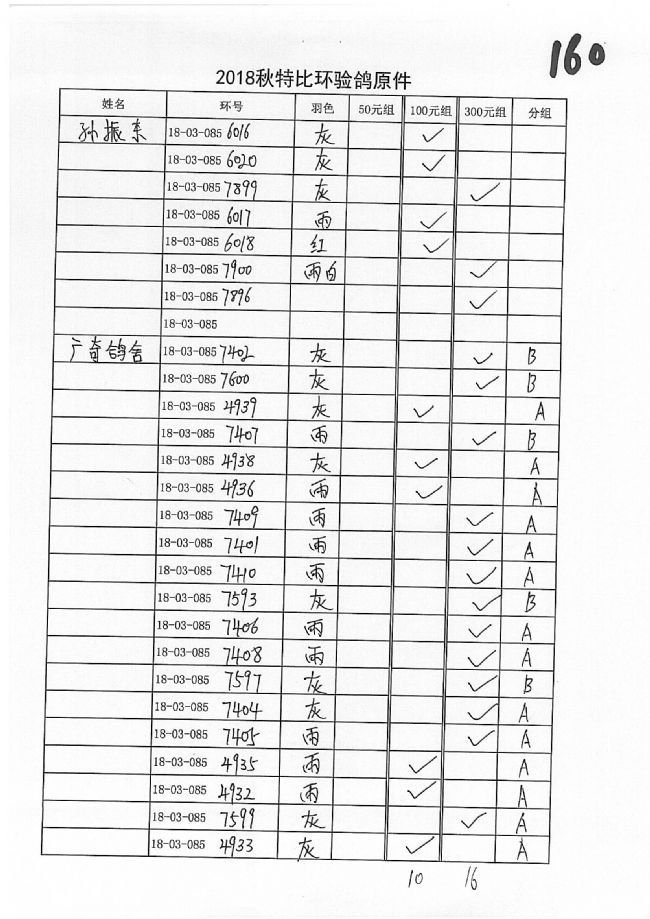 160
2018秋特比环验鸽原件
姓名 环号 羽色 50元组 100元组 300元组 分组
孙振东 18-03-085 6016 灰 ✓
18-03-085 6020 灰 ✓
18-03-085 7899 灰 ✓
18-03-085 6017 雨 ✓
18-03-085 6018 红 ✓
18-03-085 7900 雨白 ✓
18-03-085 7896 ✓
18-03-085
广奇鸽舍 18-03-085 7402 灰 ✓ B
18-03-085 7600 灰 ✓ B
18-03-085 4939 灰 ✓ A
18-03-085 7407 雨 ✓ B
18-03-085 4938 灰 ✓ A
18-03-085 4936 雨 ✓ A
18-03-085 7409 雨 ✓ A
18-03-085 7401 雨 ✓ A
18-03-085 7410 雨 ✓ A
18-03-085 7593 灰 ✓ B
18-03-085 7406 雨 ✓ A
18-03-085 7408 雨 ✓ A
18-03-085 7597 灰 ✓ B
18-03-085 7404 灰 ✓ A
18-03-085 7405 雨 ✓ A
18-03-085 4935 雨 ✓ A
18-03-085 4932 雨 ✓ A
18-03-085 7599 灰 ✓ A
18-03-085 4933 灰 ✓ A
10 16